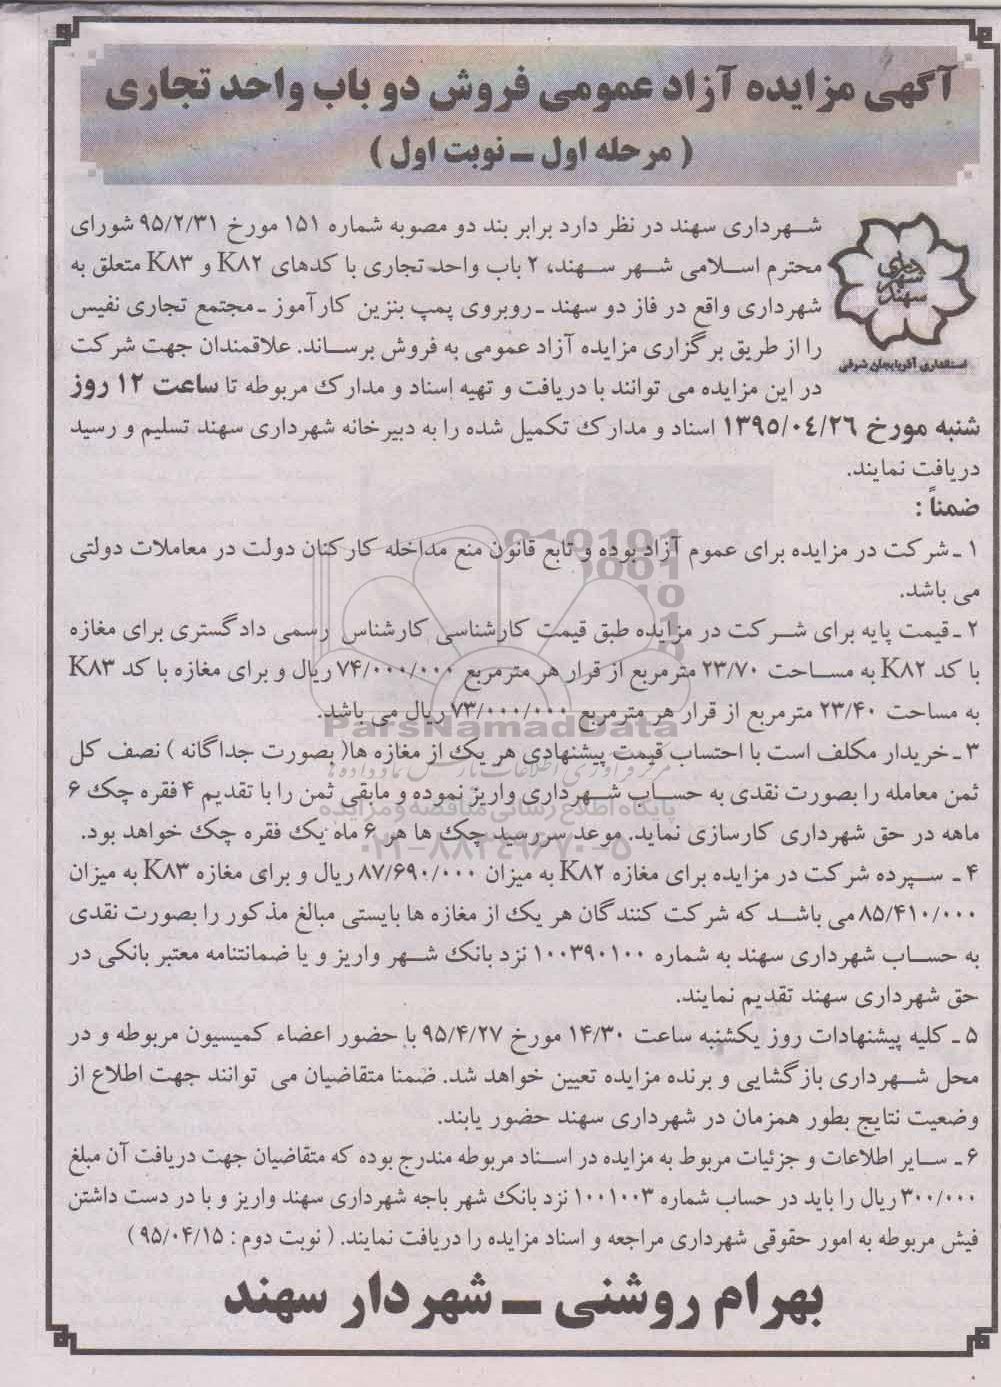 آگهی مزایده آزاد عمومی فروش دو باب واحد تجاری
( مرحله اول ـ نوبت اول )
شهرداری سهند
استانداری آذربایجان شرقی
شهرداری سهند در نظر دارد برابر بند دو مصوبه شماره ۱۵۱ مورخ ۹۵/۲/۳۱ شورای
محترم اسلامی شهر سهند، ۲ باب واحد تجاری با کدهای K۸۲ و K۸۳ متعلق به
شهرداری واقع در فاز دو سهند ـ روبروی پمپ بنزین کارآموز ـ مجتمع تجاری نفیس
را از طریق برگزاری مزایده آزاد عمومی به فروش برساند. علاقمندان جهت شرکت
در این مزایده می توانند با دریافت و تهیه اسناد و مدارک مربوطه تا ساعت ۱۲ روز
شنبه مورخ ۱۳۹۵/۰۴/۲۶ اسناد و مدارک تکمیل شده را به دبیرخانه شهرداری سهند تسلیم و رسید
دریافت نمایند.
ضمناً :
۱ ـ شرکت در مزایده برای عموم آزاد بوده و تابع قانون منع مداخله کارکنان دولت در معاملات دولتی
می باشد.
۲ ـ قیمت پایه برای شرکت در مزایده طبق قیمت کارشناسی کارشناس رسمی دادگستری برای مغازه
با کد K۸۲ به مساحت ۲۳/۷۰ مترمربع از قرار هر مترمربع ۷۴/۰۰۰/۰۰۰ ریال و برای مغازه با کد K۸۳
به مساحت ۲۳/۴۰ مترمربع از قرار هر مترمربع ۷۳/۰۰۰/۰۰۰ ریال می باشد.
ParsNamadData
۳ ـ خریدار مکلف است با احتساب قیمت پیشنهادی هر یک از مغازه ها( بصورت جداگانه ) نصف کل
مرکز فرآوری اطلاعات پارس نماد داده ها
ثمن معامله را بصورت نقدی به حساب شهرداری واریز نموده و مابقی ثمن را با تقدیم ۴ فقره چک ۶
پایگاه اطلاع رسانی مناقصه و مزایده
ماهه در حق شهرداری کارسازی نماید. موعد سررسید چک ها هر ۶ ماه یک فقره چک خواهد بود.
۰۲۱-۸۸۳۴۹۶۷۰-۵
۴ ـ سپرده شرکت در مزایده برای مغازه K۸۲ به میزان ۸۷/۶۹۰/۰۰۰ ریال و برای مغازه K۸۳ به میزان
۸۵/۴۱۰/۰۰۰ می باشد که شرکت کنندگان هر یک از مغازه ها بایستی مبالغ مذکور را بصورت نقدی
به حساب شهرداری سهند به شماره ۱۰۰۳۹۰۱۰۰ نزد بانک شهر واریز و یا ضمانتنامه معتبر بانکی در
حق شهرداری سهند تقدیم نمایند.
۵ ـ کلیه پیشنهادات روز یکشنبه ساعت ۱۴/۳۰ مورخ ۹۵/۴/۲۷ با حضور اعضاء کمیسیون مربوطه و در
محل شهرداری بازگشایی و برنده مزایده تعیین خواهد شد. ضمنا متقاضیان می توانند جهت اطلاع از
وضعیت نتایج بطور همزمان در شهرداری سهند حضور یابند.
۶ ـ سایر اطلاعات و جزئیات مربوط به مزایده در اسناد مربوطه مندرج بوده که متقاضیان جهت دریافت آن مبلغ
۳۰۰/۰۰۰ ریال را باید در حساب شماره ۱۰۰۱۰۰۳ نزد بانک شهر باجه شهرداری سهند واریز و با در دست داشتن
فیش مربوطه به امور حقوقی شهرداری مراجعه و اسناد مزایده را دریافت نمایند. ( نوبت دوم : ۹۵/۰۴/۱۵ )
بهرام روشنی ـ شهردار سهند